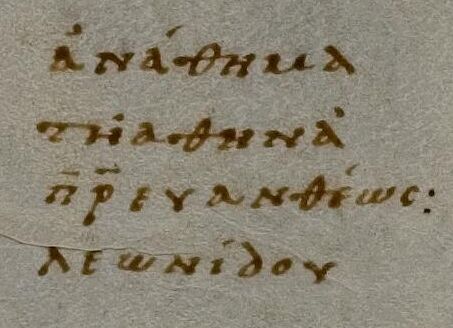 ἀνάθημα
τῆ ἀθηνᾶ
π̅ρ̅ ευανθέως:
λεωνίδου